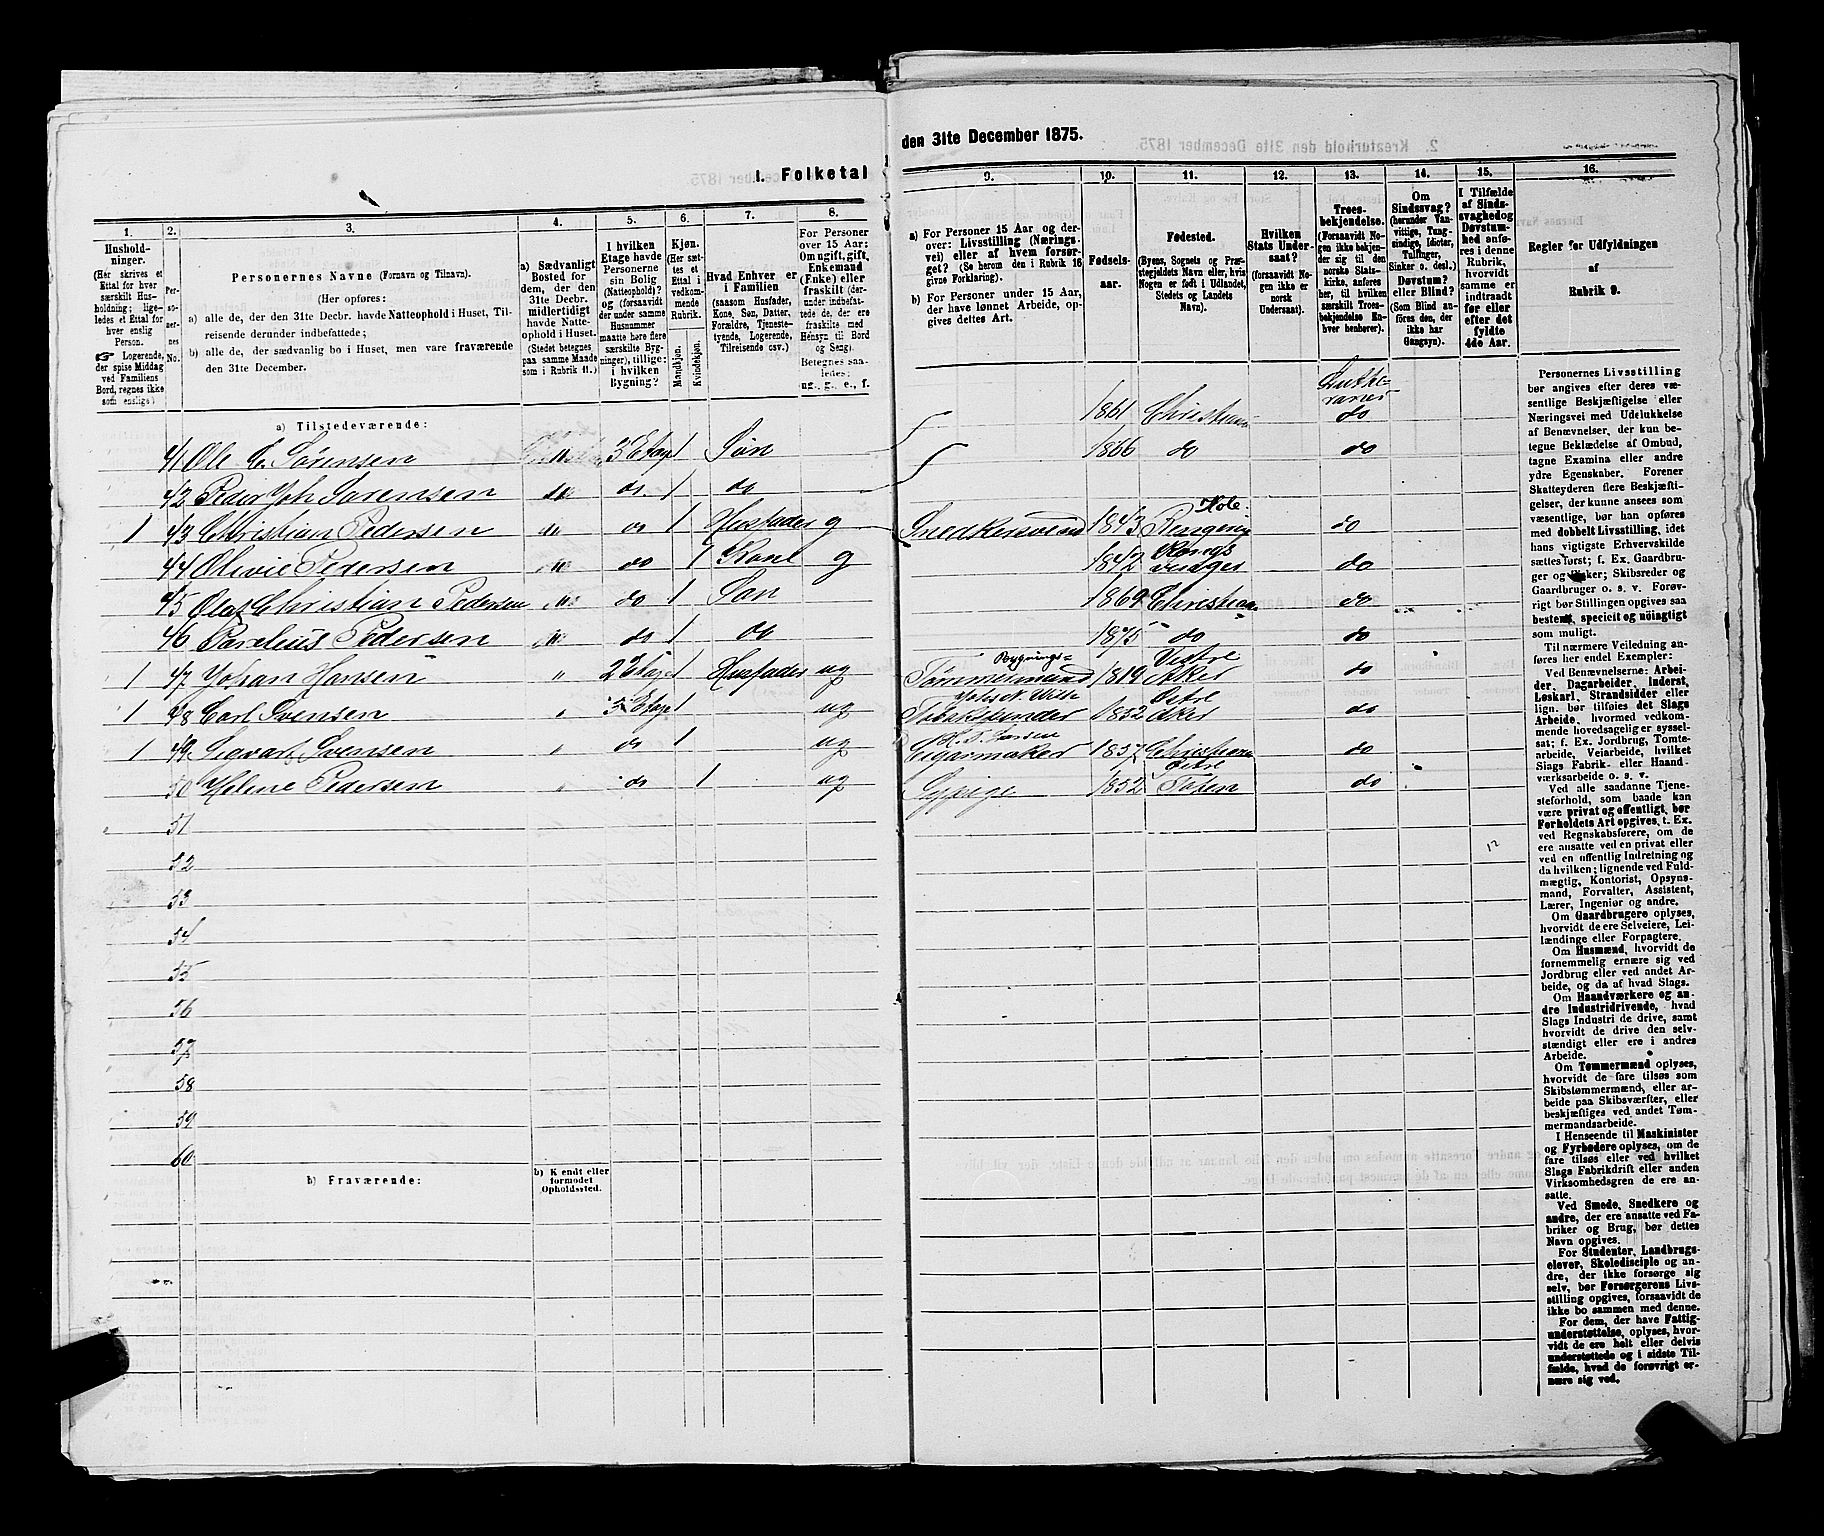 I. Folketal
den 31te December 1875.
1.
2.
3.
4.
5.
6.
7.
8.
9.
10.
11.
12.
13.
14.
15.
16.
Hushold-
ninger.
(Her skrives et
Ettal for hver
særskilt Hus-
holdning; lige-
ledes et Ettal for
hver enslig
Person.
☞ Logerende,
der spise Middag
ved Familiens
Bord, regnes ikke
som enslige)
Per-
so-
ner-
nes
No.
Personernes Navne (Fornavn og Tilnavn).
(Her opføres:
a) alle de, der den 31te Decbr. havde Natteophold i Huset, Til-
reisende derunder indbefattede;
b) alle de, der sædvanlig bo i Huset, men vare fraværende
den 31te December.
a) Sædvanligt
Bosted for
dem, der den
31te Decbr.
midlertidigt
havde Natte-
ophold i Huset.
(Stedet betegnes
paa samme Maade
som i Rubrik 11.)
I hvilken
Etage havde
Personerne
sin Bolig
(Natteophold)?
og (forsaavidt
der under samme
Husnummer
maatte høre flere
særskilte Byg-
ninger), tillige:
i hvilken
Bygning?
Kjøn.
(Her sæt-
tes et
Ettal i
vedkom-
mende
Rubrik.
Mandkjøn.
Kvindekjøn.
Hvad Enhver er
i Familien
(saasom Husfader,
Kone, Søn, Datter,
Forældre, Tjeneste-
tyende, Logerende,
Tilreisende csv.)
For Personer
over 15 Aar:
Om ugift, gift,
Enkemand
(Enke) eller
fraskilt (der-
under indbefat-
tede de, der ere
fraskilte med
Hensyn til Bord
og Seng)
Betegnes saa-
ledes:
ug., g., e., f.
a) For Personer 15 Aar og der-
over: Livsstilling (Nærings-
vei) eller af hvem forsør-
get? (Se herom den i Rubrik 16
givne Forklaring).
b) For Personer under 15 Aar,
der have lønnet Arbeide, op-
gives dettes Art.
Fødsels-
aar.
Fødested.
(Byens, Sognets og Præ-
stegjeldets Navn eller, hvis
Nogen er født i Udlandet,
Stedets og Landets
Navn).
Hvilken
Stats Under-
saat?
(forsaavidt No-
gen ikke er
norsk
Undersaat).
Troes-
bekjendelse.
(Forsaavidt No-
gen ikke bekjen-
der sig til den
norske Stats-
kirke, anføres
her, til hvilken
særskilt Troes-
bekjendelse En-
hver henhører).
Om
Sindssvag?
(herunder Van-
vittige, Tung-
sindige, Idioter,
Tullinger,
Sinker o. desl.)
Døvstum?
eller Blind?
(Som Blind an-
føres den, der
ikke har
Gangsyn).
I Tilfælde
af Sinds-
svaghed og
Døvstum-
hed anfø-
res i denne
Rubrik,
hvorvidt
samme er
indtraadt
før eller
efter det
fyldte
4de Aar.
Regler for Udfyldningen
af
Rubrik 9.
a) Tilstedeværende:
41 Ole E. Sørensen 3 Etage 1 Søn 1861 Christiania Lutheraner do
42 Peder Joh Sørensen do do. 1 do 1866 do do
1 43 Christian Pedersen do do 1 Husfader g Snedkersvend 1843 Hole Ringerig do
44 Olivie Pedersen do do 1 Kone g 1842 Kongsvinger do
45 Olaf Christian Pedersen do do 1 Søn 1869 Christiania do
46 Carelius Pedersen do do 1 do 1875 do do
1 47 Johan Hansen " 2 Etage 1 Husfader ug Bygnings-Tømmermand 1819 Vestre Aker do
1 48 Carl Svensen " 3 Etage 1 ug Tobakspinder 1852 Vestre Aker do
1 49 Sigvart Svensen " do 1 ug Cigarmaker 1857 Christiania do
50 Helene Pedersen " do 1 ug Sypige 1852 Østre Toten do
51
52
53
54
55
56
57
58
59
60
12
b) Fraværende:
b) Kjendt eller
formodet
Opholdssted.
Personernes Livsstilling
bør angives efter deres væ-
sentlige Beskjæftigelse eller
Næringsvei med Udelukkelse
af Benævnelser, der kun be-
tegne Beklædelse af Ombud,
tagne Examina eller andre
ydre Egenskaber. Forener
Skatteyderen flere Beskjæfti-
gelser, der kunne ansees som
væsentlige, bør han opføres
med dobbelt Livsstilling, idet
hans vigtigste Erhvervskilde
sættes først; f. Ex. Gaardbru-
ger og Fisker; Skibsreder og
Gaardbruger o. s. v. Forøv-
rigt bør Stillingen opgives saa
bestemt, specielt og nøiagtigt
som muligt.
Til nærmere Veiledning an-
føres her endel Exempler:
Ved Benævnelserne: Arbei-
der, Dagarbeider, Inderst,
Løskarl, Strandsidder eller
lign. bør tilføies det Slags
Arbeide, hvormed vedkom-
mende hovedsagelig er syssel-
sat; f. Ex. Jordbrug, Tomte-
arbeide, Veiarbeide, hvilket
Slags Fabrik- eller Haand-
værksarbeide o. s. v.
Ved alle saadanne Tjene-
steforhold, som baade kan
være privat og offentligt, bør
Forholdets Art opgives, t. Ex.
ved Regnskabsførere, om de
ere ansatte ved en privat eller
ved en offentlig Indretning og
da hvilken; lignende ved Fuld-
mægtig, Kontorist, Opsyns-
mand, Forvalter, Assistent,
Lærer, Ingeniør og andre.
Om Gaardbrugere oplyses,
hvorvidt de ere Selveiere, Lei-
lændinge eller Forpagtere.
Om Husmænd, hvorvidt de
fornemmelig ernære sig ved
Jordbrug eller ved andet Ar-
beide, og da af hvad Slags.
Om Haandværkere og an-
dre Industridrivende, hvad
Slags Industri de drive, samt
hvorvidt de drive den selv-
stændigt eller ere i andres
Arbeide.
Om Tømmermænd oplyses,
hvorvidt de fare tilsøs som
Skibstømmermænd, eller ar-
beide paa Skibsværfter, eller
beskjæftiges ved andet Tøm-
mermandsarbeide.
I Henseende til Maskinister
og Fyrbødere oplyses, om de
fare tilsøs eller ved hvilket
Slags Fabrikdrift eller anden
Virksomhedsgren de ere an-
satte.
Ved Smede, Snedkere og
andre, der ere ansatte ved Fa-
briker og Brug, bør dettes
Navn opgives.
For Studenter, Landbrugs-
elever, Skoledisciple og an-
dre, der ikke forsørge sig
selv, bør Forsørgerens Livs-
stilling opgives, forsaavidt de
ikke bo sammen med denne.
For dem, der have Fattig-
understøttelse, oplyses, hvor-
vidt de ere helt eller delvis
understøttede og i sidste Til-
fælde, hvad de forøvrigt er-
nære sig ved.